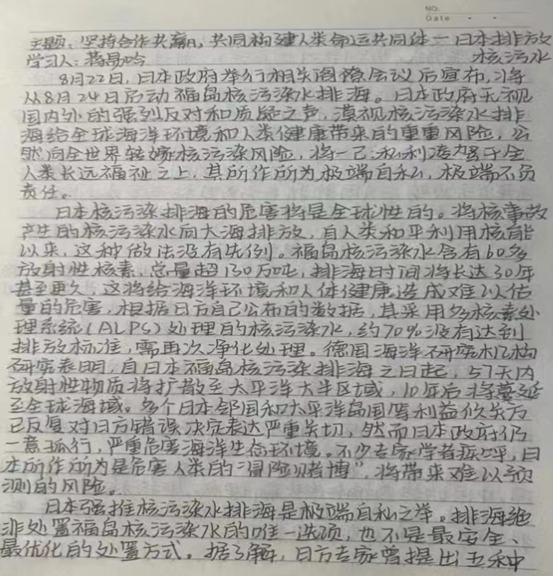 NO.
Date
主题：坚持合作共赢，共同构建人类命运共同体—日本排放
核污水
学习人：蒋易晗
8月22日，日本政府举行相关阁僚会议后宣布，将
从8月24日启动福岛核污染水排海。日本政府无视
国内外的强烈反对和质疑之声，漠视核污染水排
海给全球海洋环境和人类健康带来的重重风险，公
然向全世界转嫁核污染风险，将一己私利凌驾于全
人类长远福祉之上，其所作所为极端自私，极端不负
责任。
日本核污染排海的危害将是全球性的。将核事故
产生的核污染水向大海排放，自人类和平利用核能
以来，这种做法没有先例。福岛核污染水含有60多
放射性核素，总量超130万吨，排海时间将长达30年
甚至更久，这将给海洋环境和人体健康造成难以估
量的危害，根据日方自己公布的数据，其采用多核素处
理系统（ALPS）处理的核污染水，约70%没有达到
排放标准，需再次净化处理。德国海洋研究机构
研究表明，自日本福岛核污染水排海之日起，57天内
放射性物质将扩散至太平洋大半区域，10年后将蔓延
至全球海域。多个日本邻国和太平洋岛国等利益攸关方
已反复对日方错误决定表达严重关切，然而日本政府仍
一意孤行，严重危害海洋生态环境。不少专家学者振呼，日
本所作所为是危害人类的“冒险赌博”，将带来难以预
测的风险。
日本强推核污染水排海是极端自私之举。排海绝
非处置福岛核污染水的唯一选项，也不是最安全、
最优化的处置方式。据了解，日方专家曾提出五种